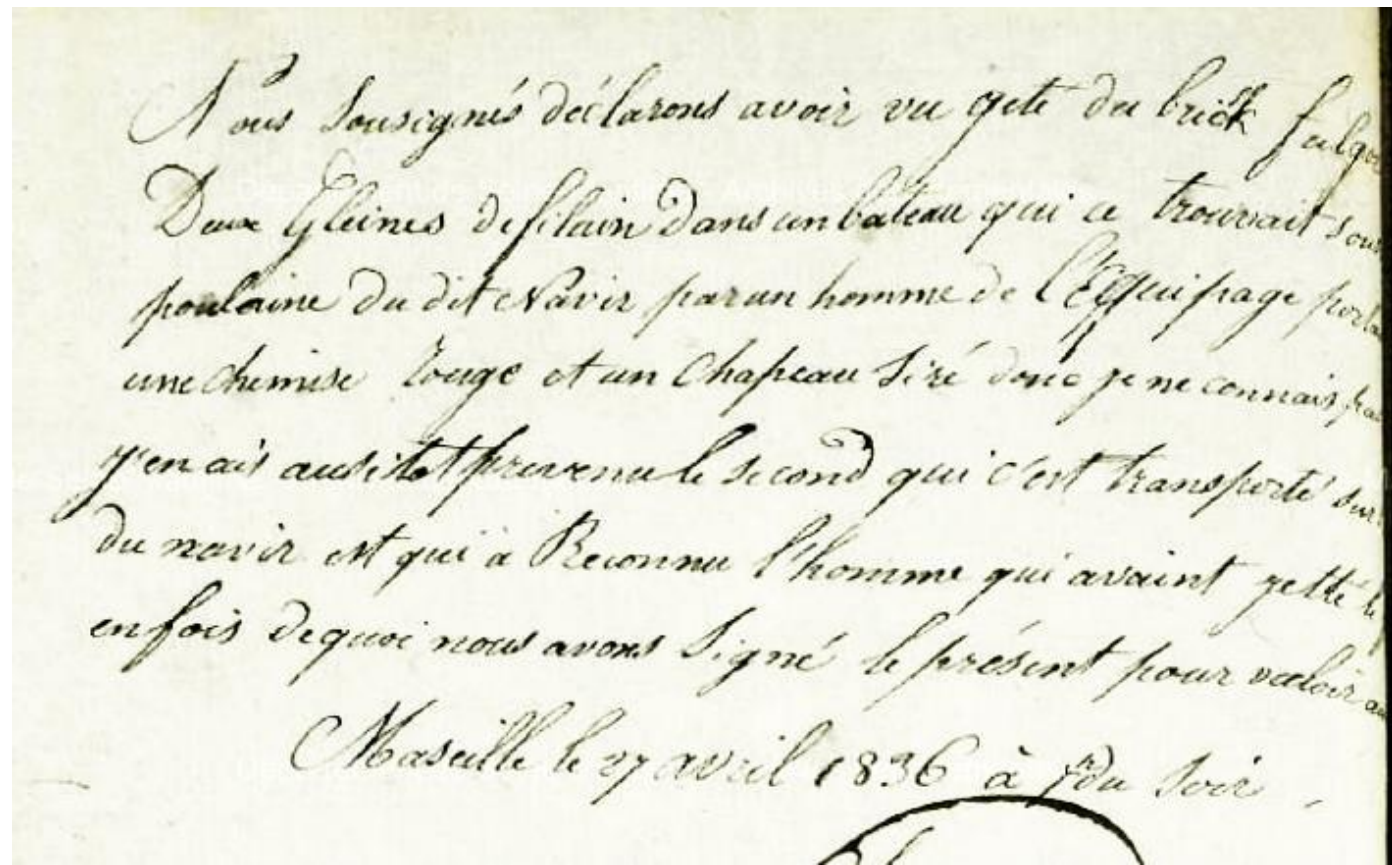 Nous Sousignés déclarons avoir vu gete du brick fulgor
Deux Gleines de filain dans un bateau qui ce trouvait sous
poulaine du dit Navir par un homme de l'Equipage porta
une chemise rouge et un Chapeau Siré donc je ne connais pas
j'en ais ausitot prevenu le second qui c'est transporté sur
du navir et qui à Reconnu l'homme qui avaint jetté le
en fois dequoi nous avons Signé le présent pour valoir
Maseille le 27 avril 1836 à du Soir